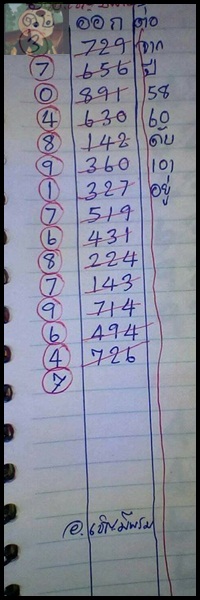 ออก ต่อ
3 729 จาก
7 656 ปี
0 891 58
4 630 60
8 142 ดับ
9 360 101
1 327 อยู่
7 519
6 431
8 224
7 143
9 714
6 494
4 726
7